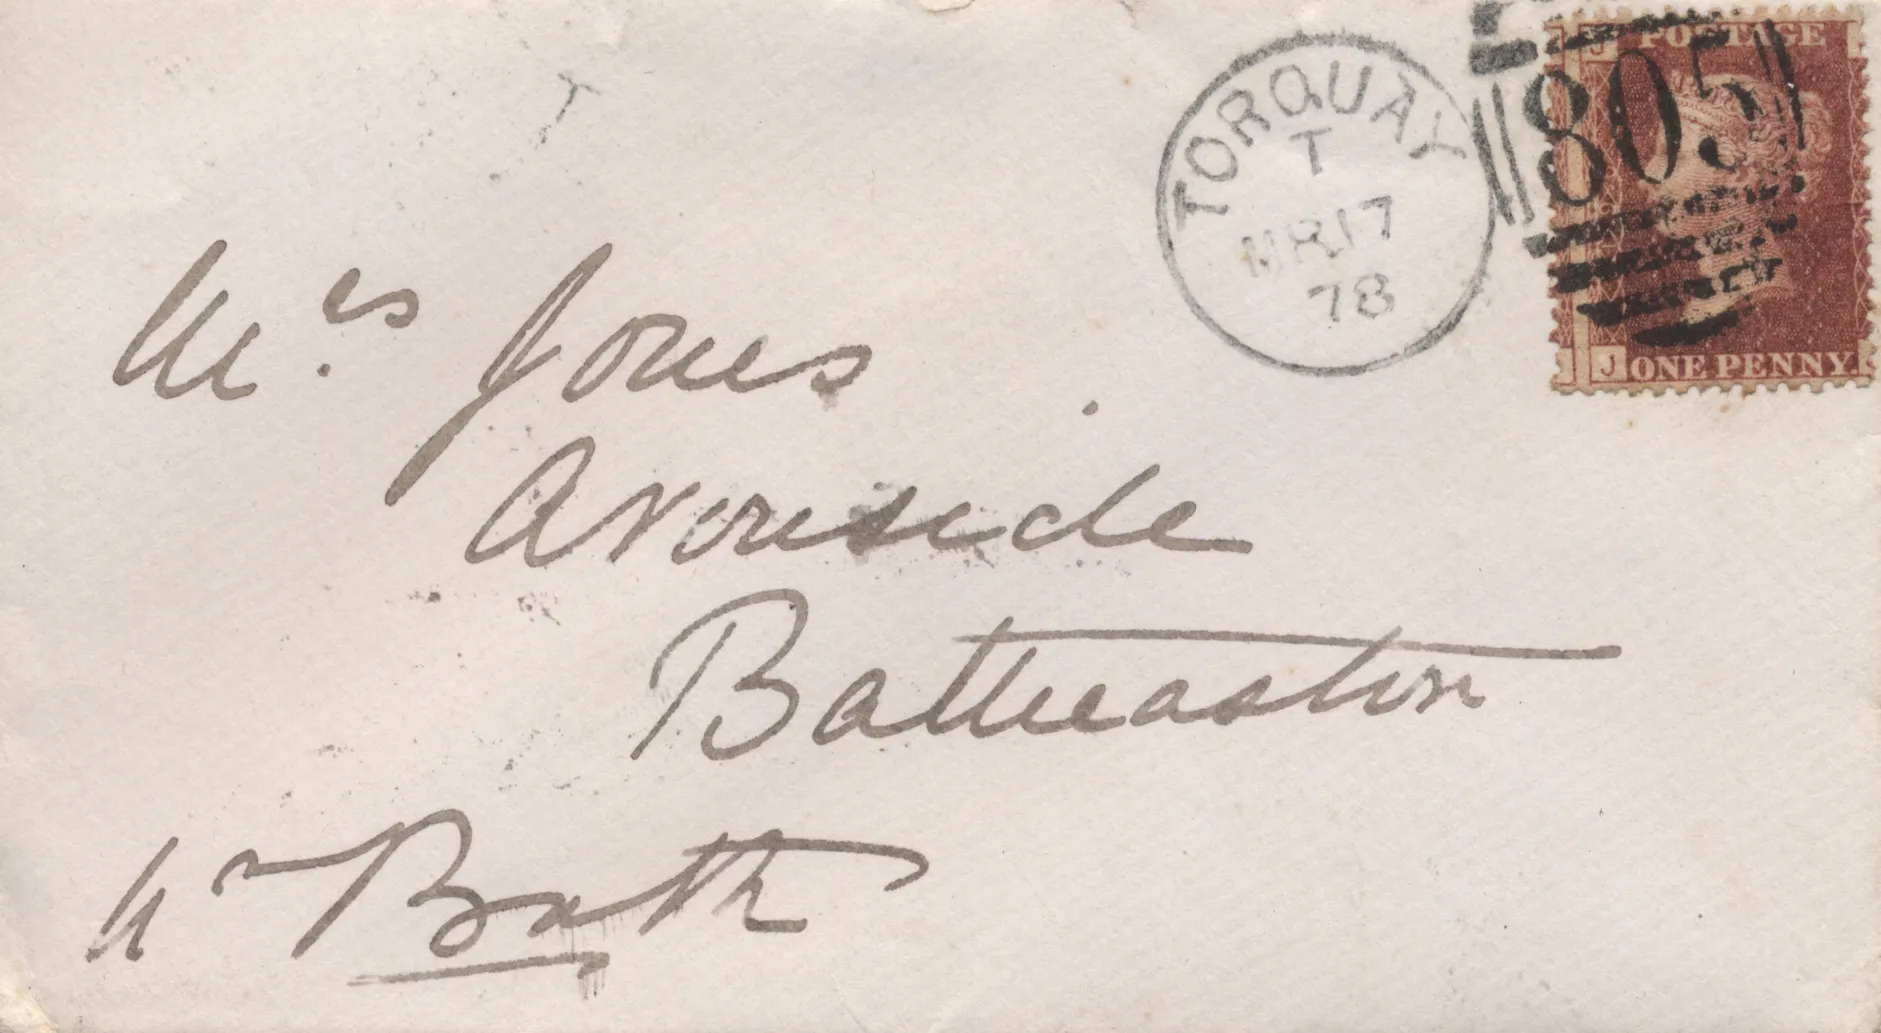 TORQUAY
T
MR 17
78
805
J POSTAGE
J ONE PENNY
Mrs Jones
Avonside
Batheaston
nr Bath